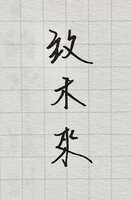 致未来